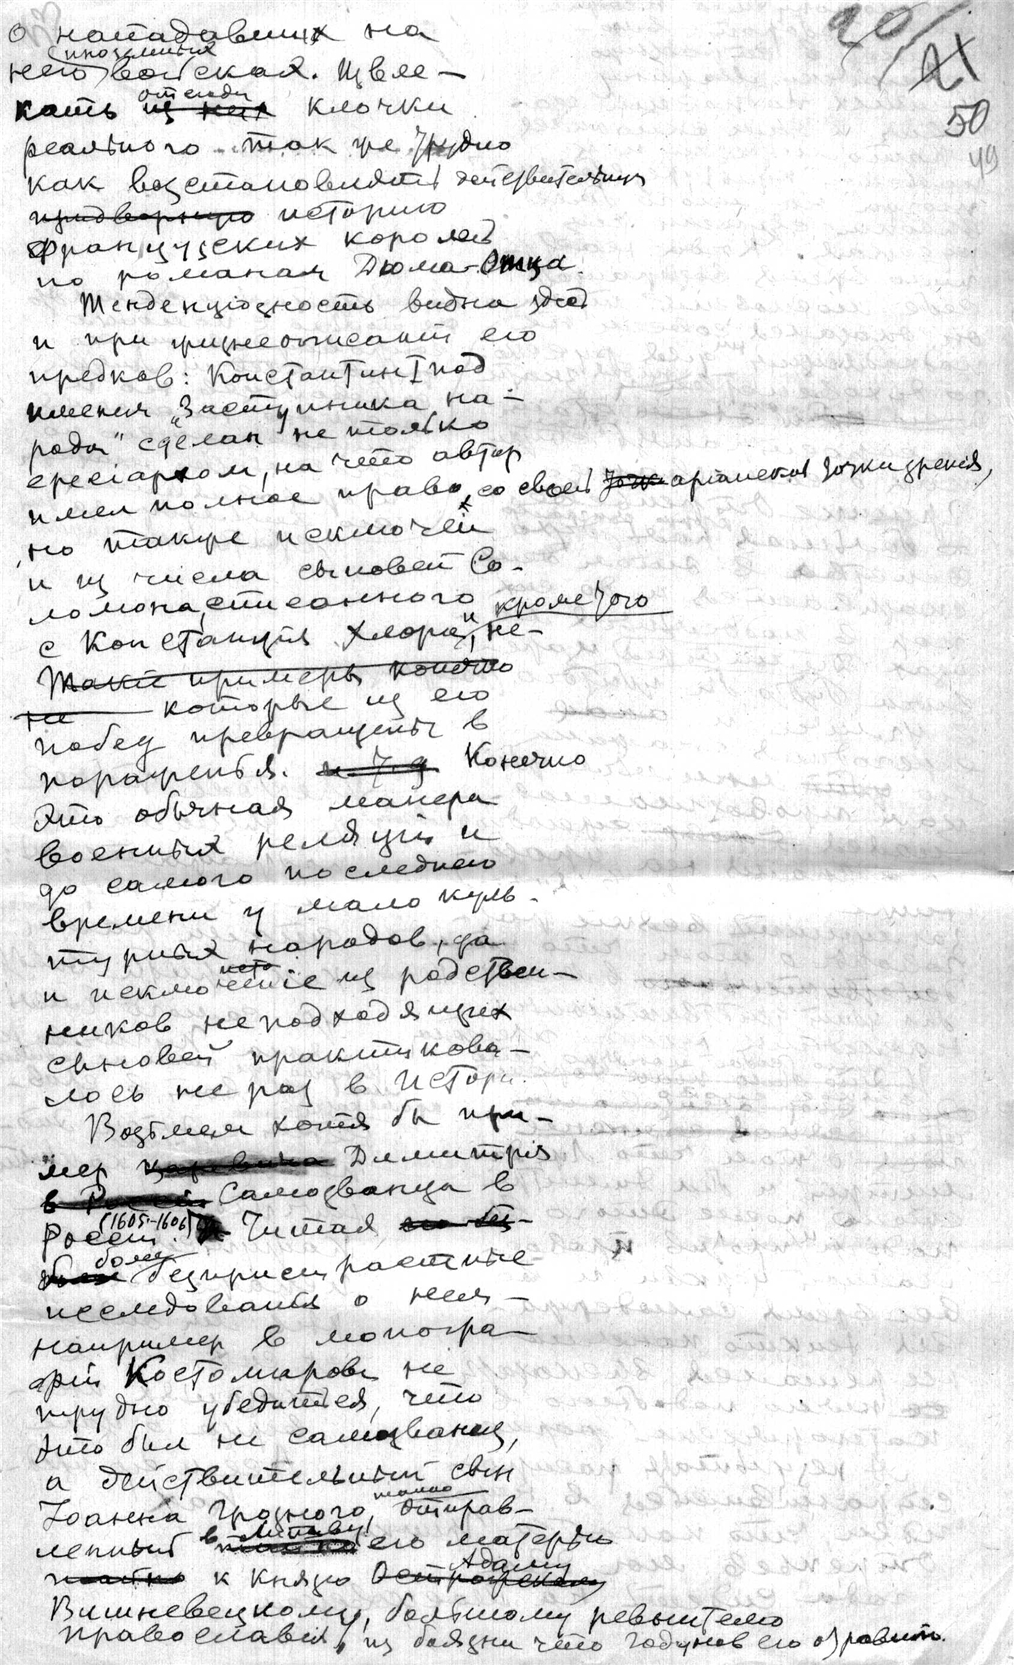 20/
21
50
49
о нападавших на
него иноземных войсках. Извле-
кать отсюда из них клочки
реального так же трудно
как возстановлять действительную
придворную историю
французских королей
по романам Дюма-Отца.
Тенденціозность видна здесь
и при жизнеописаніи его
предков: Константин I под
именем „Заступника на-
рода" сделан не только
ересіархом, на что автор
имел полное право, со своей точки аріанской точки зренія,
но также исключен
и из числа сыновей Со-
ломона, списанного
с Констанція Хлора, и кроме того не-
Такие примеры конечно
не которые из его
побед превращены в
пораженья. и т д Конечно
это обычная манера
военных реляцій и
до самого последнего
времени у мало куль-
турных народов, да
и исключеніе из родствен-
ников неподходящих
сыновей практикова-
лось не раз в Исторіи.
Возьмем хотя бы при-
мер царевича Димитрія
в Россіи Самозванца в
Россіи (1605-1606). Читая
более безпристрастные
исследованія о нем-
например в моногра-
фіи Костомарова не
трудно убедиться, что
это был не самозванец,
а действительный сын
Іоанна Грозного, тайно отправ-
ленный в Литву его матерью
к князю Адаму Острожскому
Вишневецкому, большому ревнителю
православія, из боязни что Годунов его отравит.